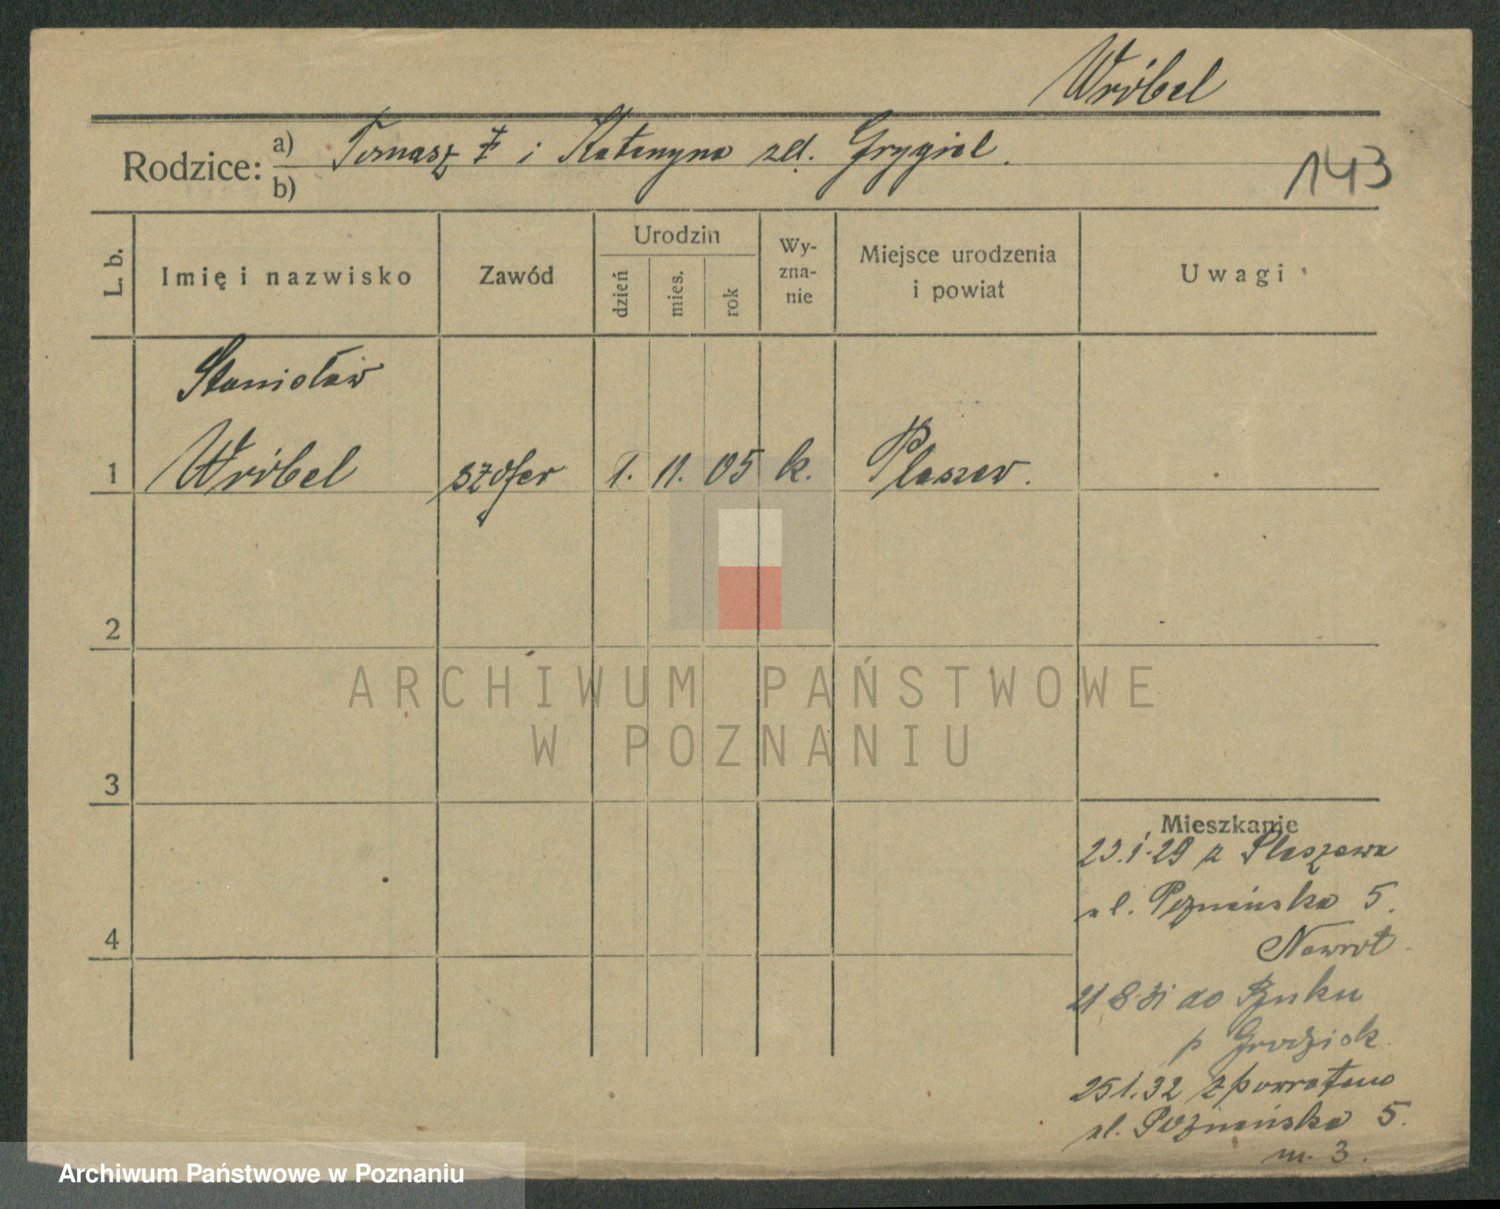 Wróbel
Rodzice: a) Tomasz ‡ i Katarzyna zd. Grygiel.
b)
143
L. b. Imię i nazwisko Zawód Urodzin dzień mies. rok Wy-zna-nie Miejsce urodzenia i powiat Uwagi
Stanisław
1 Wróbel szofer 1. 11. 05 k. Pleszew.
2
ARCHIWUM PAŃSTWOWE
W POZNANIU
3
Mieszkanie
23.1.29 z Pleszewa
ul. Poznańska 5.
Nawrot
4
21 8 31 do Buku
p Grodzisk
25 1.32 z powrotem
ul. Poznańska 5.
m. 3.
Archiwum Państwowe w Poznaniu